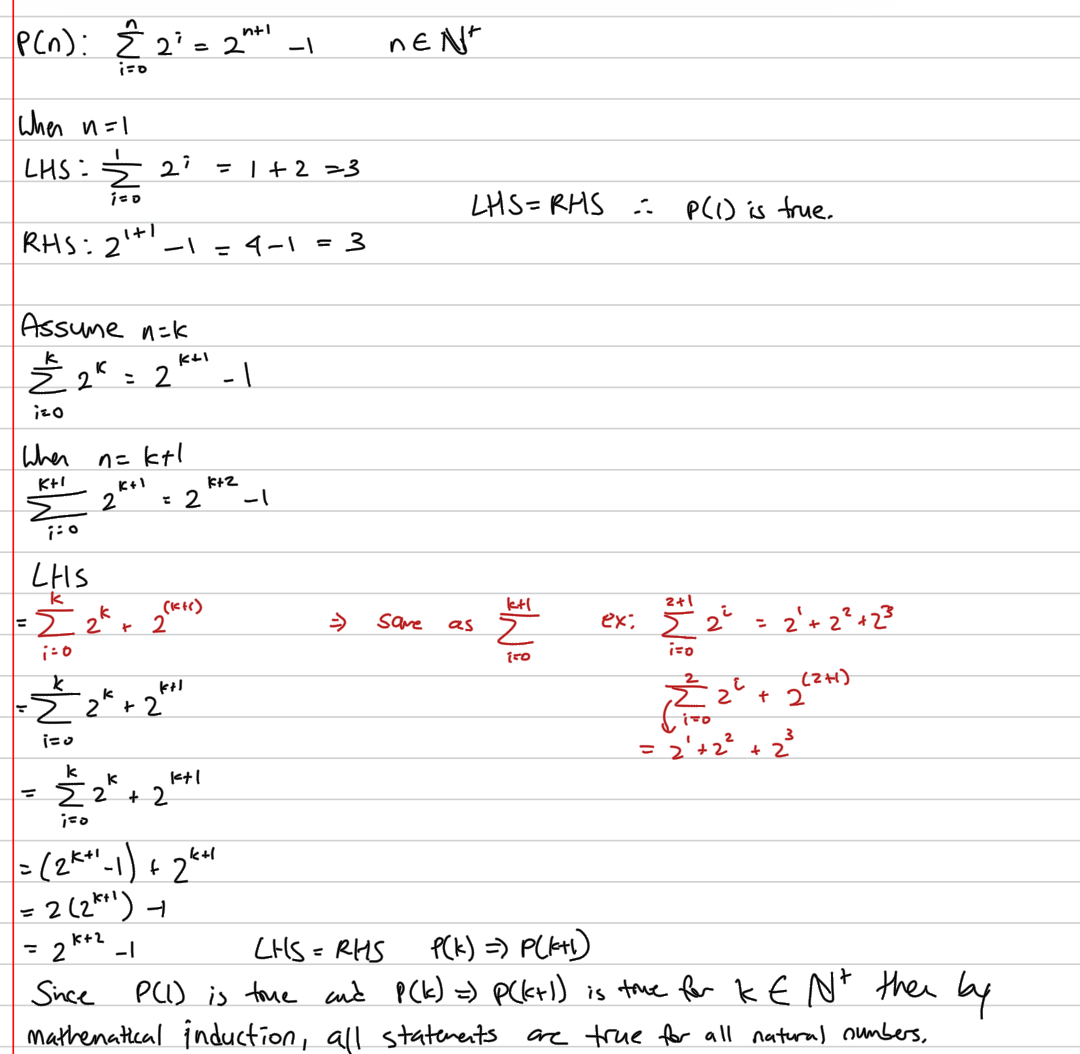 P(n): ∑_{i=0}^{n} 2^i = 2^{n+1} -1 n ∈ ℕ^+
When n=1
LHS: ∑_{i=0}^{1} 2^i = 1+2 =3
LHS = RHS ∴ P(1) is true.
RHS: 2^{1+1} -1 = 4-1 = 3
Assume n=k
∑_{i=0}^{k} 2^k = 2^{k+1} -1
When n= k+1
∑_{i=0}^{k+1} 2^{k+1} = 2^{k+2} -1
LHS
= ∑_{i=0}^{k} 2^k + 2^{(k+1)} ⇒ same as ∑_{i=0}^{k+1} ex: ∑_{i=0}^{2+1} 2^i = 2^1 + 2^2 + 2^3
= ∑_{i=0}^{k} 2^k + 2^{k+1} ∑_{i=0}^{2} 2^i + 2^{(2+1)}
= 2^1 + 2^2 + 2^3
= ∑_{i=0}^{k} 2^k + 2^{k+1}
= (2^{k+1} -1) + 2^{k+1}
= 2(2^{k+1}) -1
= 2^{k+2} -1 LHS = RHS P(k) ⇒ P(k+1)
Since P(1) is true and P(k) ⇒ P(k+1) is true for k ∈ ℕ^+ then by
mathematical induction, all statements are true for all natural numbers.